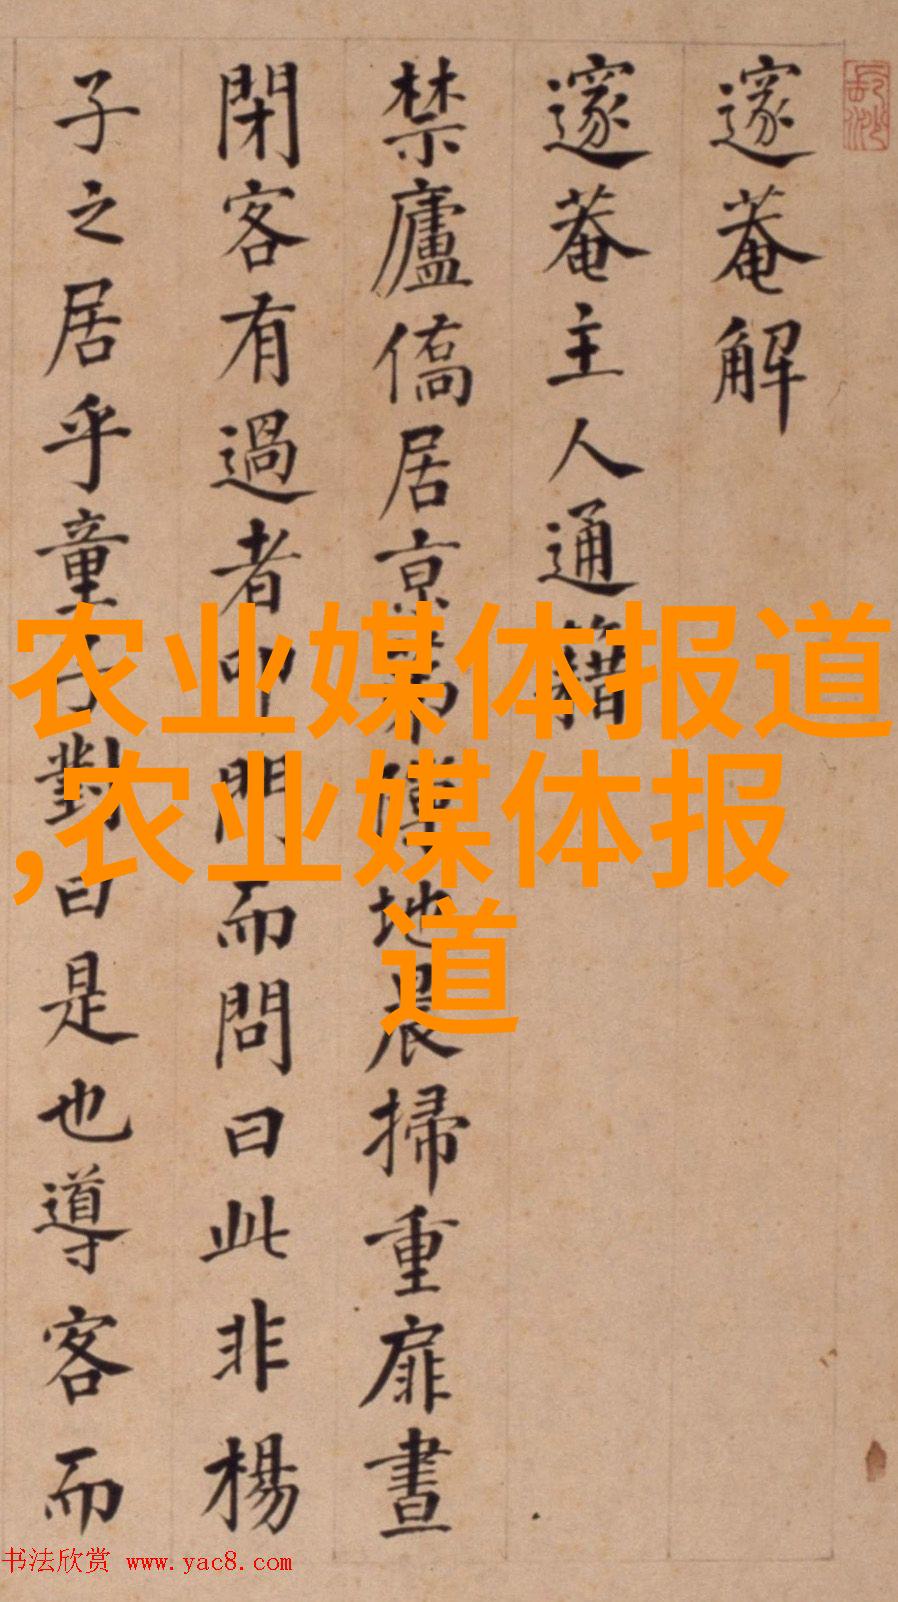 邃菴解
邃菴主人通籍
禁廬僑居京第地晨掃重扉晝
閉客有過者叩門而問曰此非楊
子之居乎童子對曰是也導客而
农业媒体报道
,农业媒体报
道
书法欣赏 www.yac8.com